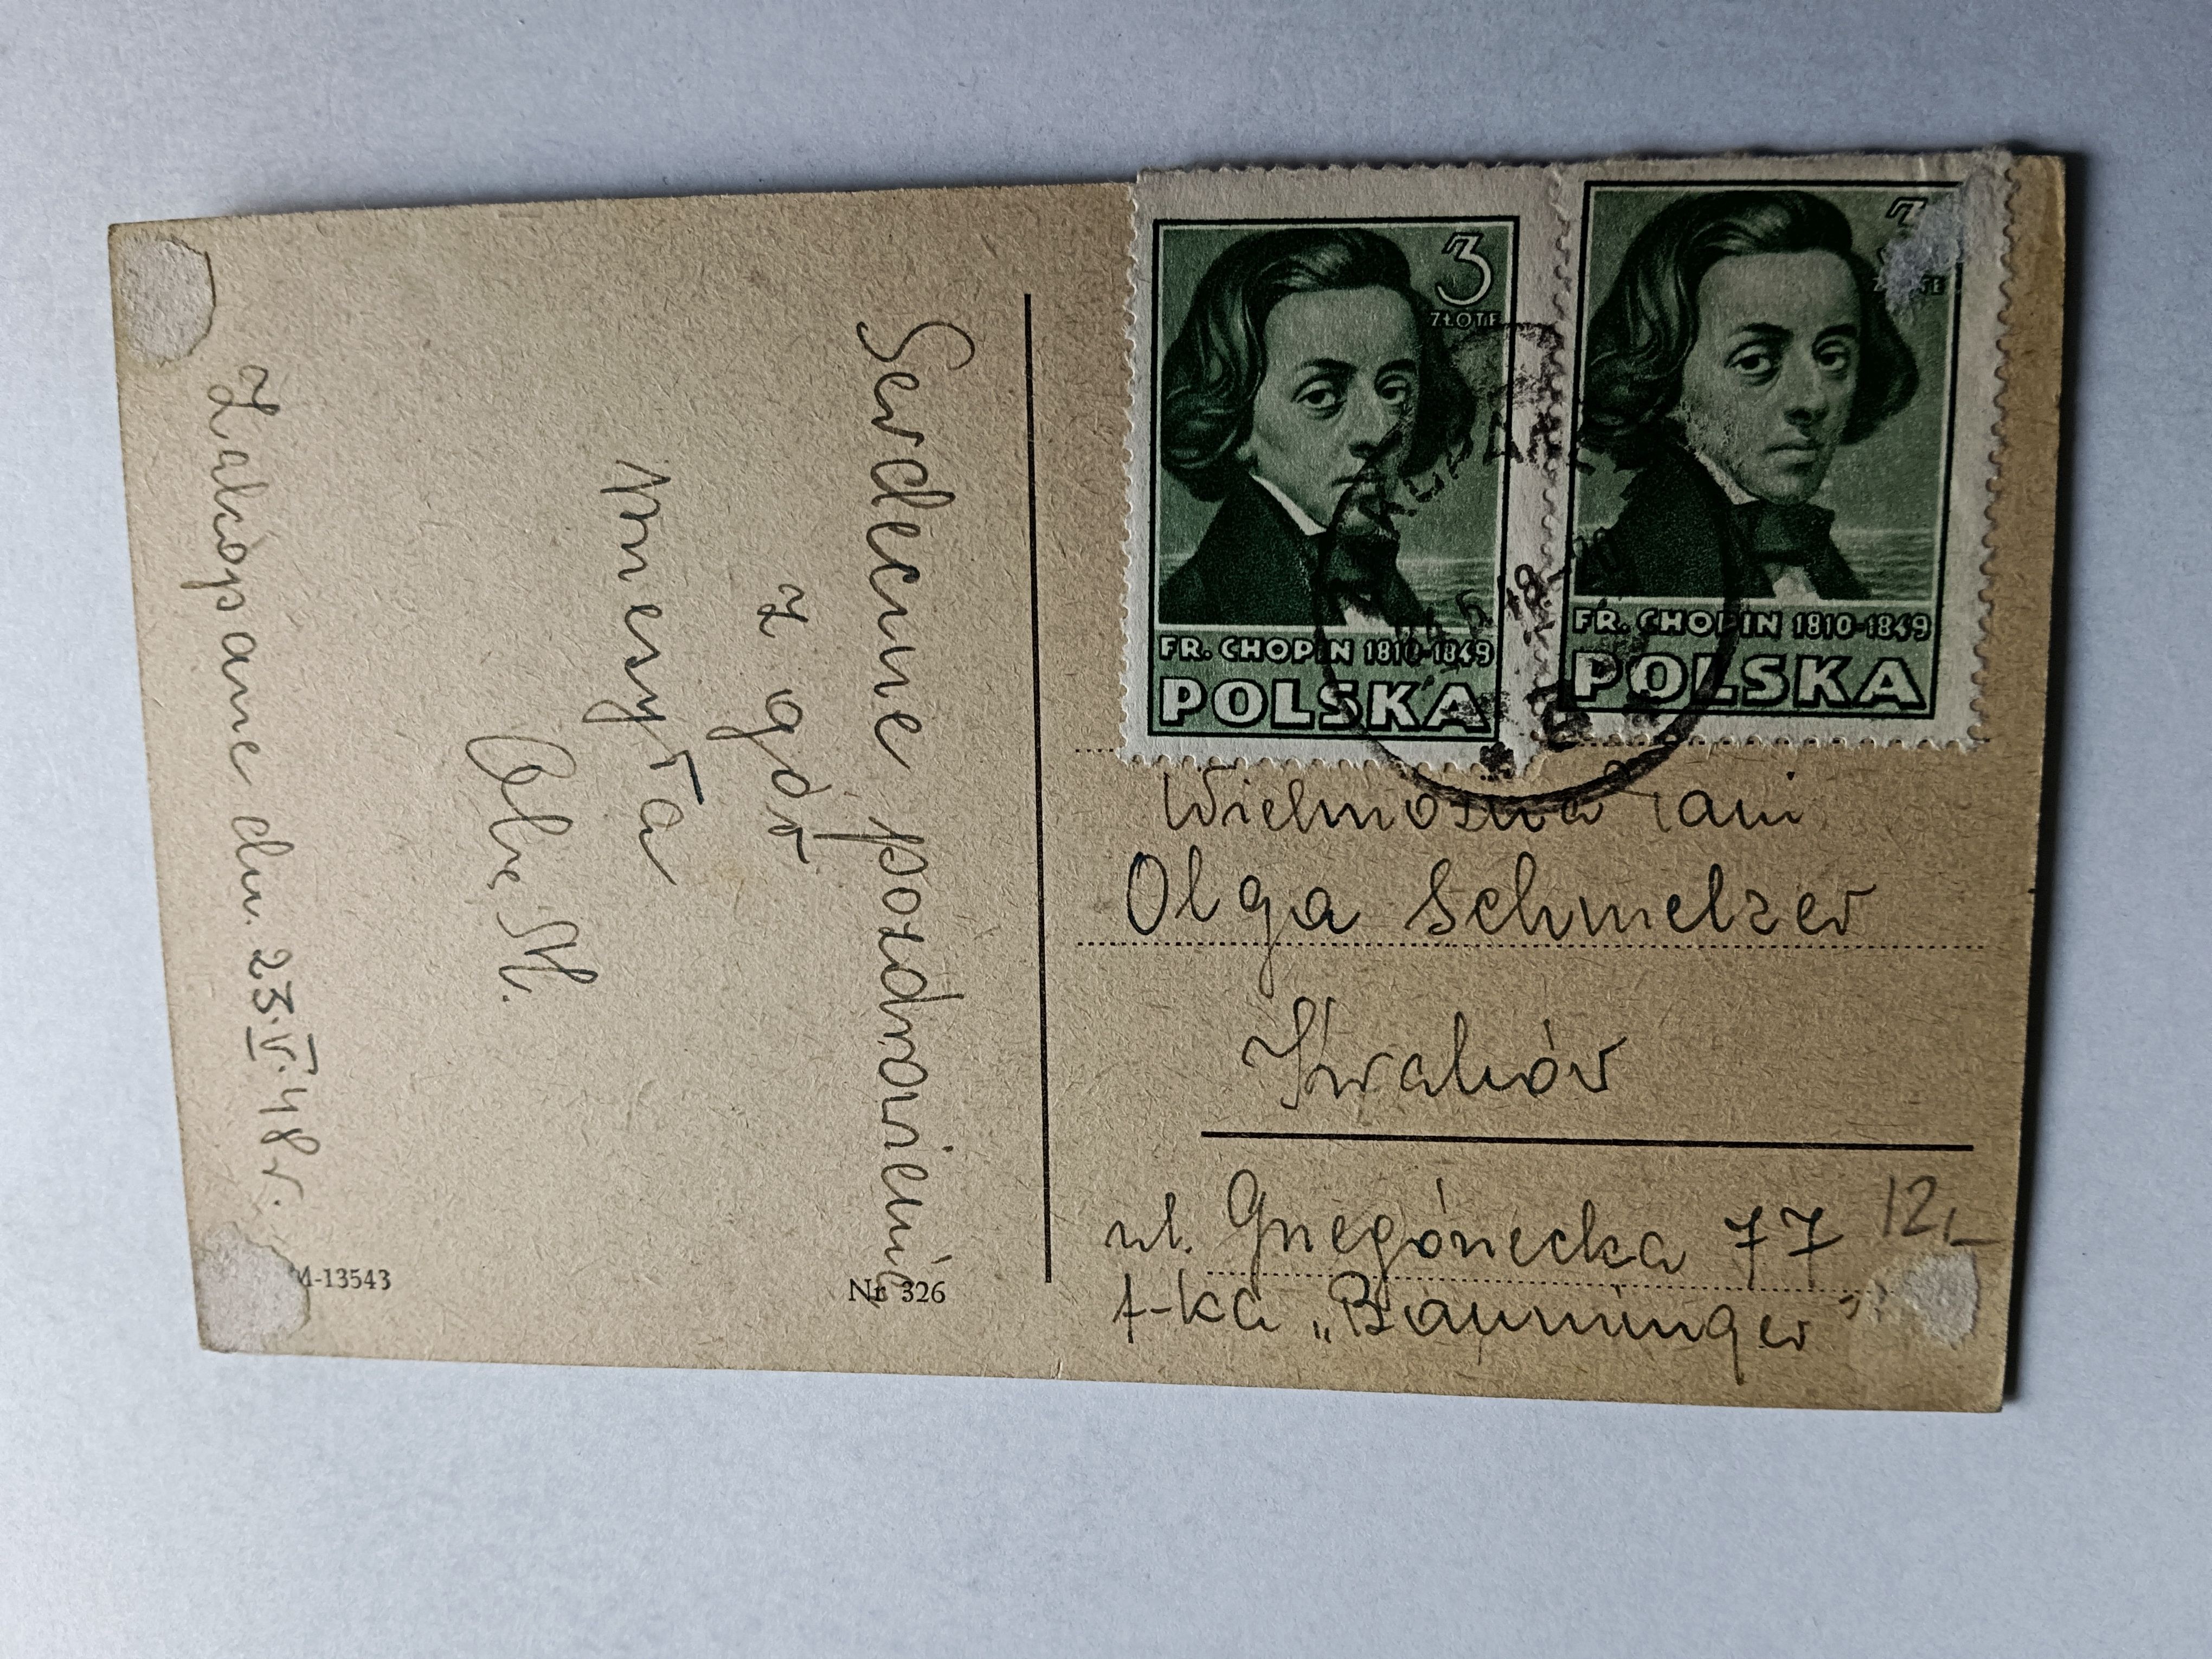 Zakopane dn. 23.V.48 r.
Serdeczne pozdrowienia
z gór
przesyła
3
ZŁOTE
FR. CHOPIN 1810-1849
POLSKA
FR. CHOPIN 1810-1849
POLSKA
Wielmożna Pani
Olga Schmelzer
Kraków
ul. Grzegórzecka 77
f-ka „Bauminger”
12,-
M-13543
Nr 326